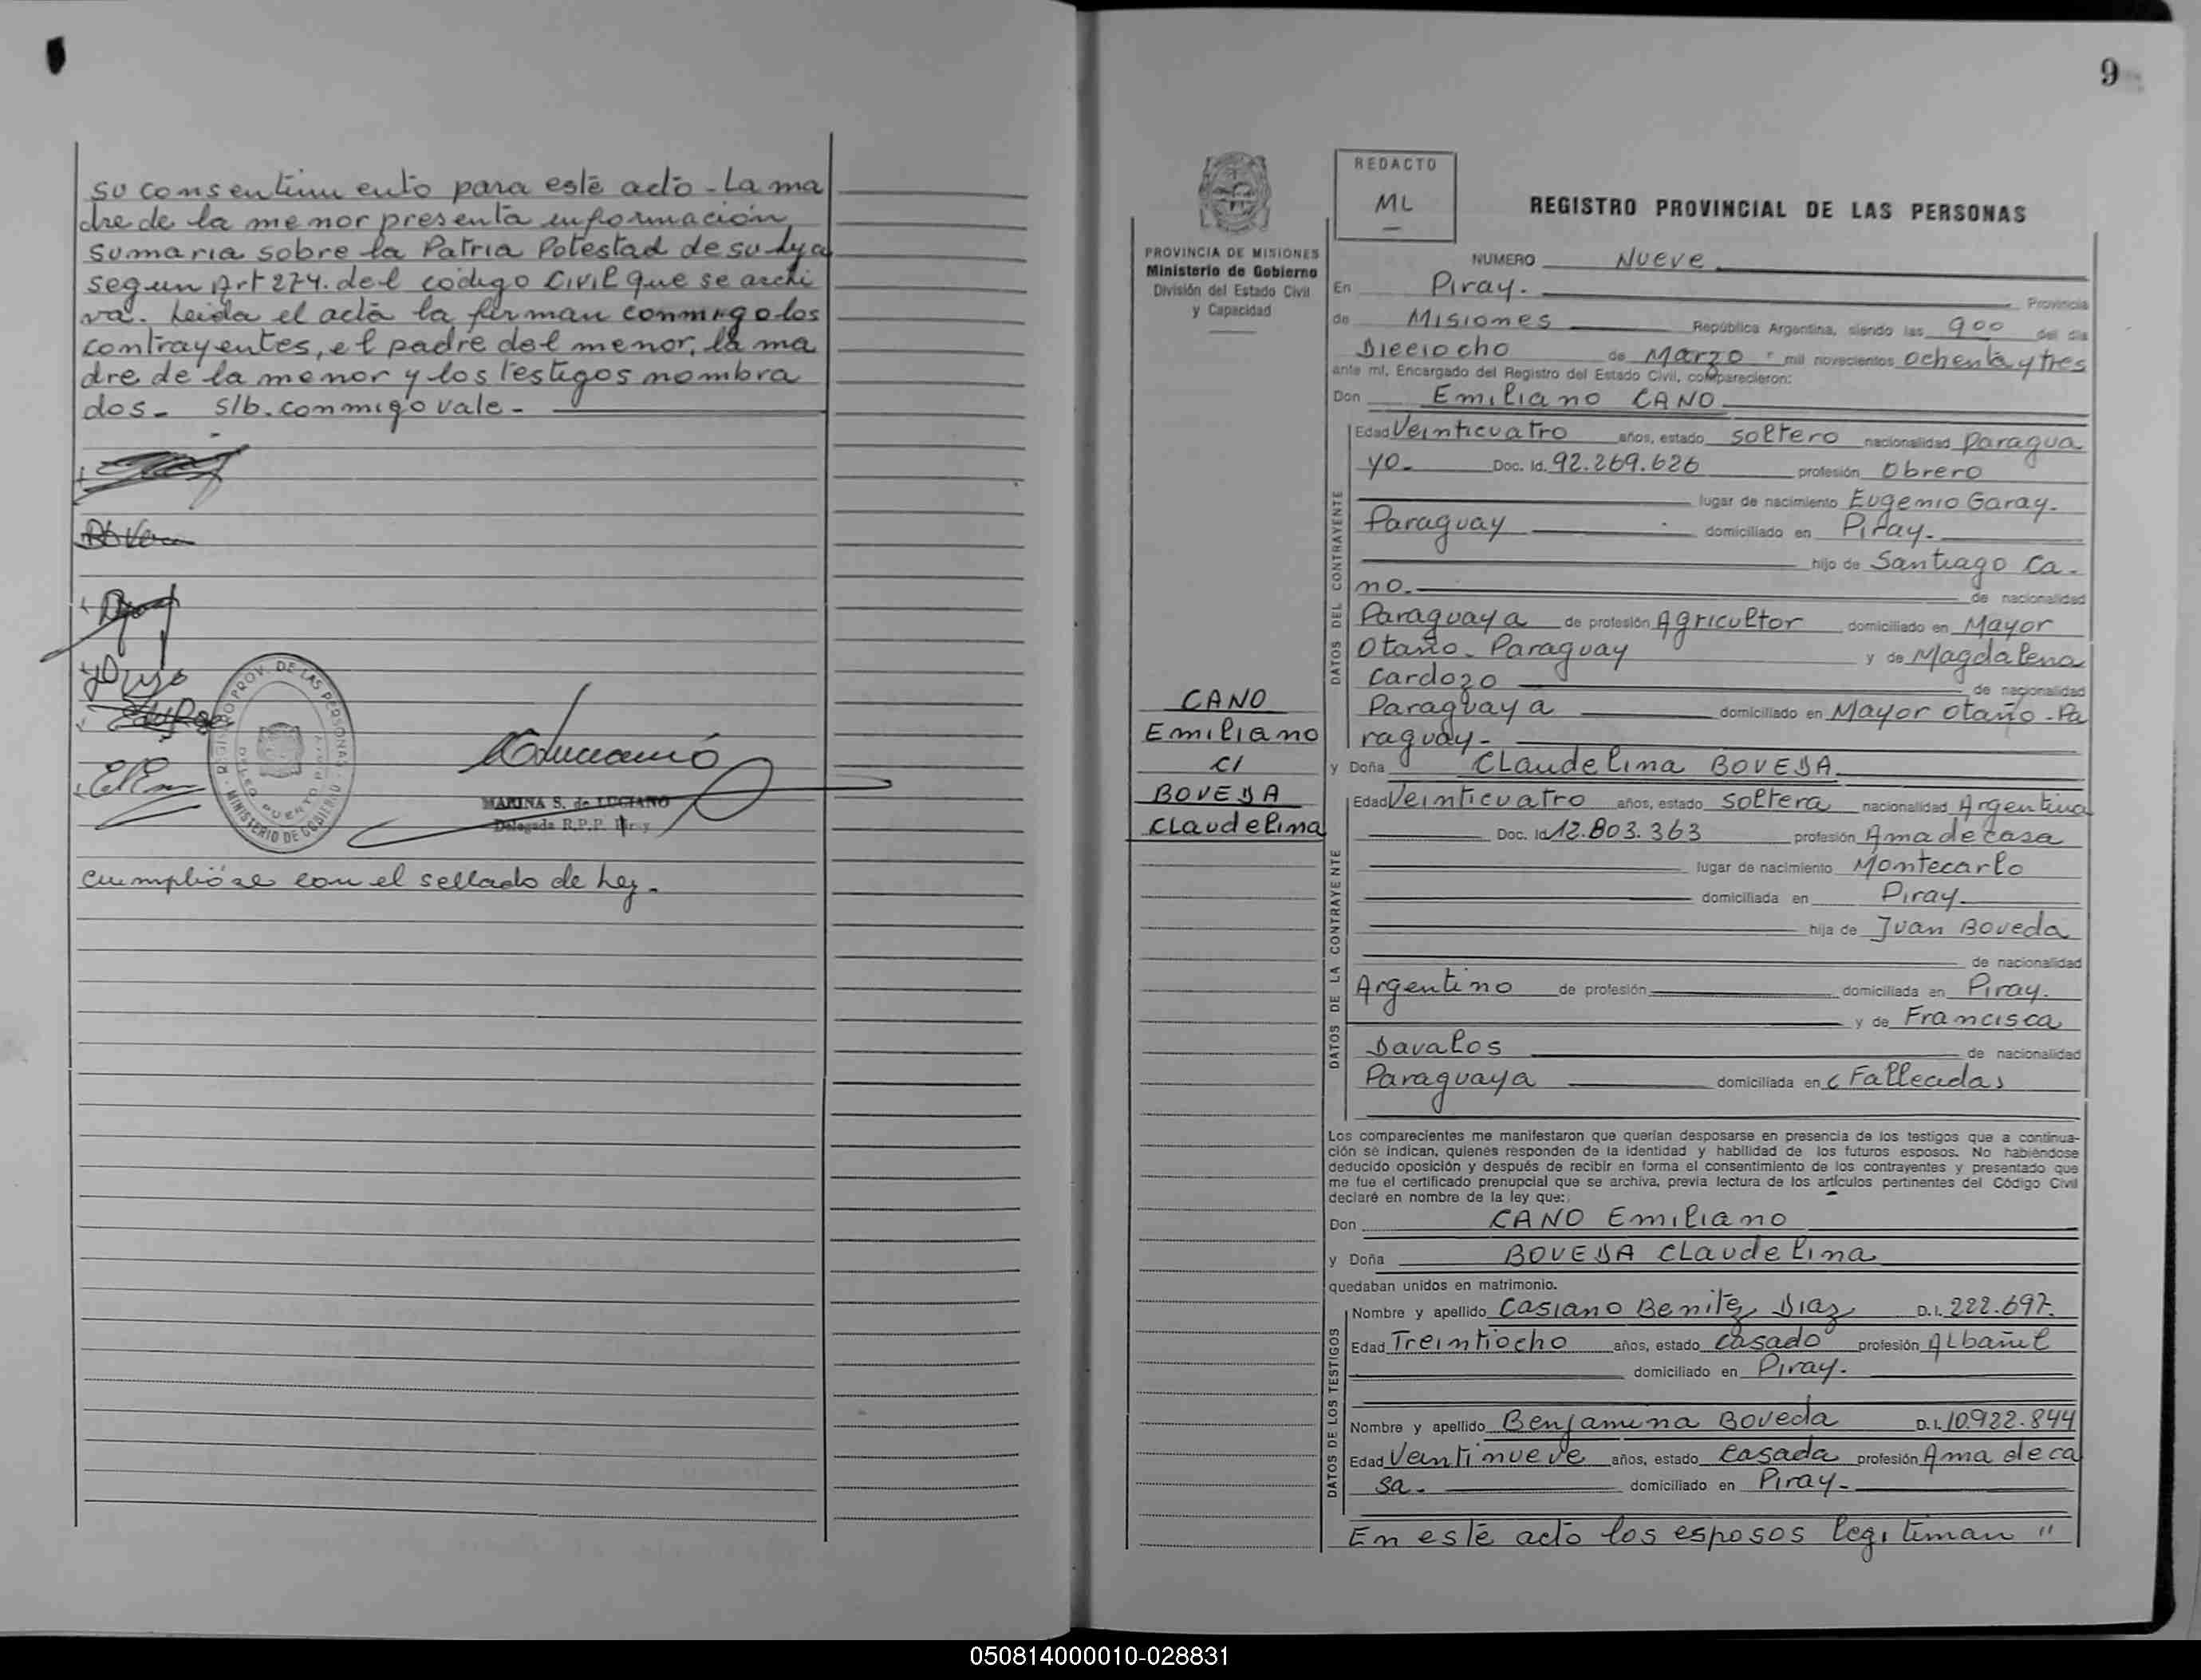 su consentimiento para este acto - La ma
dre de la menor presenta información
sumaria sobre la Patria Potestad de su hija
segun Art 274. del codigo Civil que se archi
va. Leida el acta la firman conmigo los
contrayentes, el padre del menor, la ma
dre de la menor y los testigos nombra
dos - s/b. conmigo vale -
REGISTRO PROV. DE LAS PERSONAS
MINISTERIO DE GOBIERNO
MARINA S. de LUCIANO
Delegada R.P.P. Piray
cumplióse con el sellado de ley -
9
PROVINCIA DE MISIONES
Ministerio de Gobierno
División del Estado Civil
y Capacidad
CANO
Emiliano
C/
BOVEDA
Claudelina
REDACTO
ML
REGISTRO PROVINCIAL DE LAS PERSONAS
NUMERO Nueve
En Piray. Provincia
de Misiones República Argentina, siendo las 900 del día
Dieciocho de Marzo mil novecientos ochenta y tres
ante mí, Encargado del Registro del Estado Civil, comparecieron:
Don Emiliano CANO
DATOS DEL CONTRAYENTE
Edad Veinticuatro años, estado soltero nacionalidad paragua
yo- Doc. Id. 92.269.626 profesión Obrero
lugar de nacimiento Eugenio Garay-
Paraguay domiciliado en Piray-
hijo de Santiago Ca-
no. de nacionalidad
Paraguaya de profesión Agricultor domiciliado en Mayor
Otaño - Paraguay y de Magdalena
Cardozo de nacionalidad
Paraguaya domiciliado en Mayor otaño - Pa
raguay-
y Doña Claudelina BOVEDA
DATOS DE LA CONTRAYENTE
Edad Veinticuatro años, estado soltera nacionalidad Argentina
Doc. Id 12.803.363 profesión Ama de casa
lugar de nacimiento Montecarlo
domiciliada en Piray-
hija de Juan Boveda
de nacionalidad
Argentino de profesión domiciliada en Piray.
y de Francisca
Davalos de nacionalidad
Paraguaya domiciliada en (Fallecida)
Los comparecientes me manifestaron que querían desposarse en presencia de los testigos que a continua-
ción se indican, quienes responden de la identidad y habilidad de los futuros esposos. No habiéndose
deducido oposición y después de recibir en forma el consentimiento de los contrayentes y presentado que
me fue el certificado prenupcial que se archiva, previa lectura de los artículos pertinentes del Código Civil
declaré en nombre de la ley que:
Don CANO Emiliano
y Doña BOVEDA Claudelina
quedaban unidos en matrimonio.
DATOS DE LOS TESTIGOS
Nombre y apellido Casiano Benitez Diaz D.I. 222.697.
Edad Treintiocho años, estado casado profesión Albañil
domiciliado en Piray.
Nombre y apellido Benjamina Boveda D.I. 10.922.844
Edad Veintinueve años, estado casada profesión Ama de ca
sa. domiciliado en Piray-
En este acto los esposos legitiman "
050814000010-028831